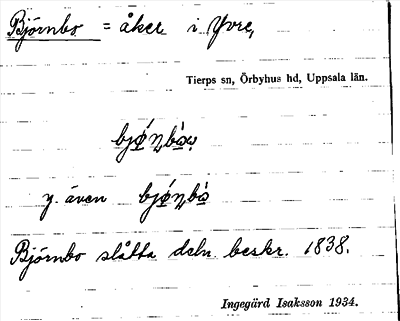 Björnbo = åker i Yvre,
Tierps sn, Örbyhus hd, Uppsala län.
bjǿ̱ŋbò̱ω
y. även bjǿ̱ŋbò̱
Björnbo slåtta deln. beskr. 1838.
Ingegärd Isaksson 1934.